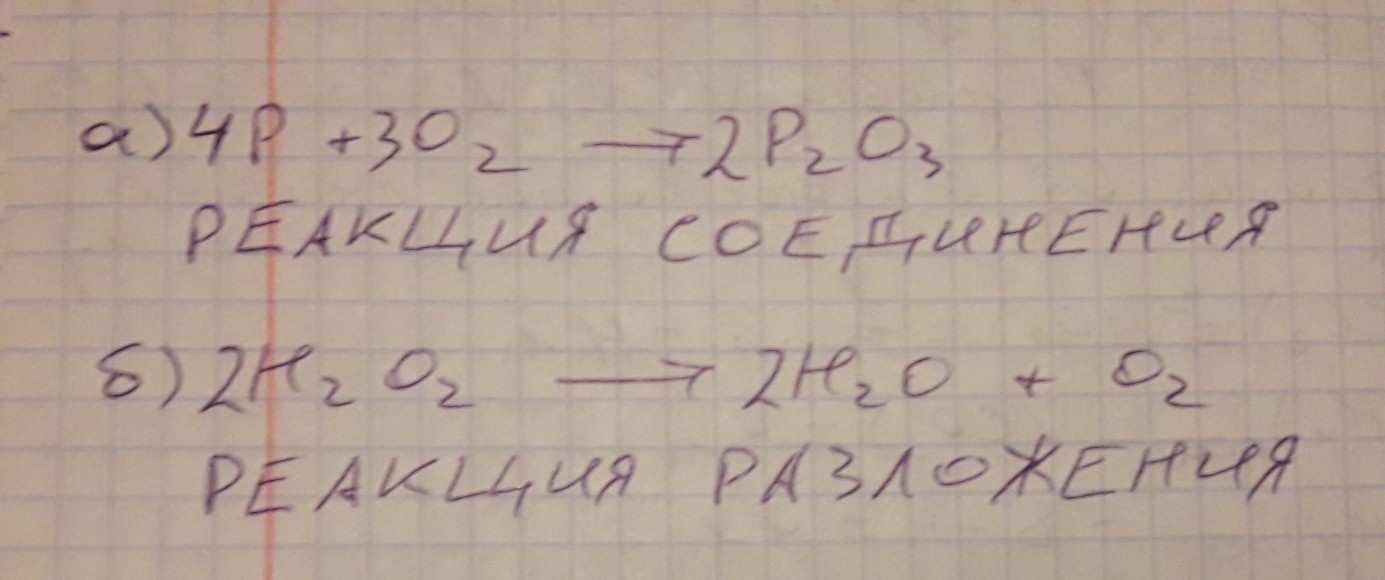 а) 4P + 3O₂ → 2P₂O₃
РЕАКЦИЯ СОЕДИНЕНИЯ
б) 2H₂O₂ → 2H₂O + O₂
РЕАКЦИЯ РАЗЛОЖЕНИЯ